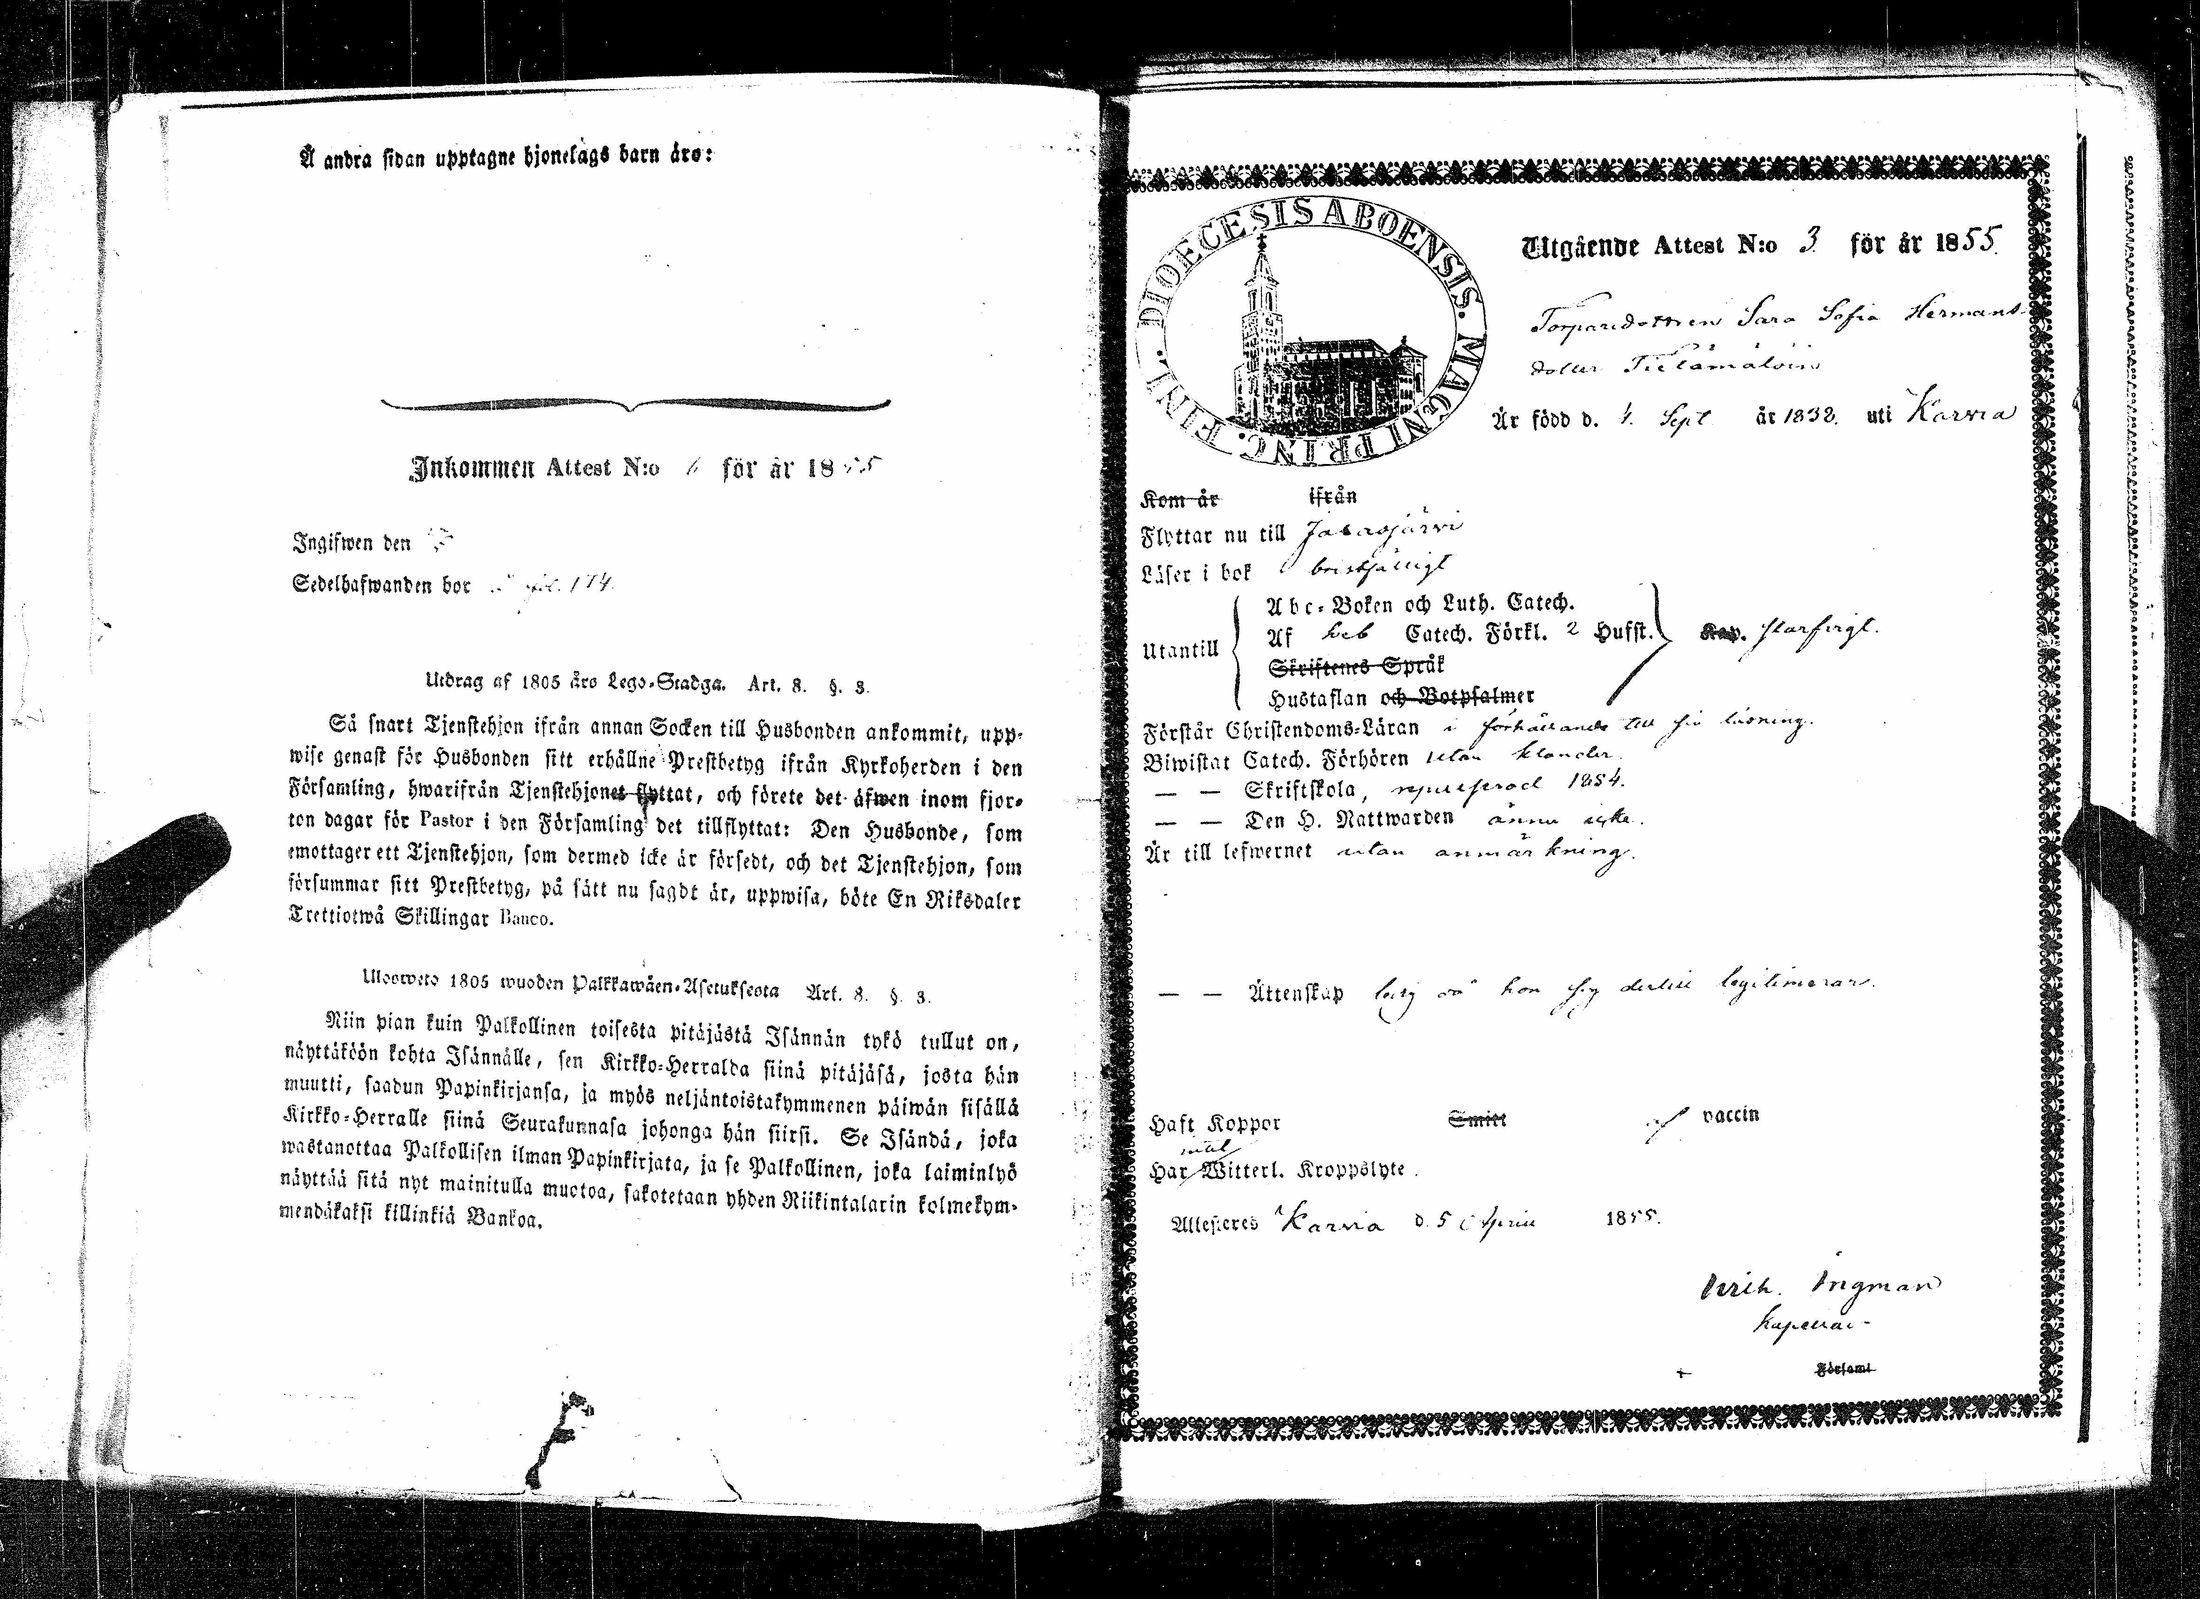 Å andra sidan upptagne hjonelags barn äro:
Inkommen Attest N:o 6 för år 1855
Ingifwen den
Sedelhafwanden bor fol. 174.
Utdrag af 1805 års Lego-Stadga. Art. 8. §. 3.
Så snart Tjenstehjon ifrån annan Socken till Husbonden ankommit, upp-
wise genast för Husbonden sitt erhållne Prestbetyg ifrån Kyrkoherden i den
Församling, hwarifrån Tjenstehjonet flyttat, och förete det äfwen inom fjor-
ton dagar för Pastor i den Församling det tillflyttat: Den Husbonde, som
emottager ett Tjenstehjon, som dermed icke är försedt, och det Tjenstehjon, som
försummar sitt Prestbetyg, på sätt nu sagdt är, uppwisa, böte En Riksdaler
Trettiotwå Skillingar Banco.
Ulosweto 1805 wuoden Palkkawäen-Asetuksesta Art. 8. §. 3.
Niin pian kuin Palkollinen toisesta pitäjästä Isännän tykö tullut on,
näyttäköön kohta Isännälle, sen Kirkko-Herralda siinä pitäjäsä, josta hän
muutti, saadun Papinkirjansa, ja myös neljäntoistakymmenen päiwän sisällä
Kirkko-Herralle siinä Seurakunnasa johonga hän siirsi. Se Isändä, joka
wastanottaa Palkollisen ilman Papinkirjata, ja se Palkollinen, joka laiminlyö
näyttää sitä nyt mainitulla muotoa, sakotetaan yhden Riikintalarin kolmekym-
mendäkaksi killinkiä Bankoa.
DIOECESIS ABOENSIS. MAGNI PRINC. FINL.
Utgående Attest N:o 3 för år 1855.
Torparedottren Sara Sofia Hermans-
dotter
Är född d. 4. Sept år 1838. uti Karvia
Kom år ifrån
Flyttar nu till Jalasjärvi
Läser i bok bristfälligt
Utantill
Abc-Boken och Luth. Catech.
Af Catech. Förkl. 2 Hufst.
Skriftenes Språk
Hustaflan och Botpsalmer
Kap. starfvigt.
Förstår Christendoms-Läran i förhållande till sin läsning.
Biwistat Catech. Förhören utan klander.
— — Skriftskola, 1854.
— — Den H. Nattwarden ännu icke.
Är till lefwernet utan anmärkning.
— — Ättenskap ledig då hon sig dertill legitimerar.
Haft Koppor Smitt af vaccin
intet
Har Witterl. Kroppslyte.
Attesteres Karvia d. 5 April 1855.
Ingman
Kapellan
Församl